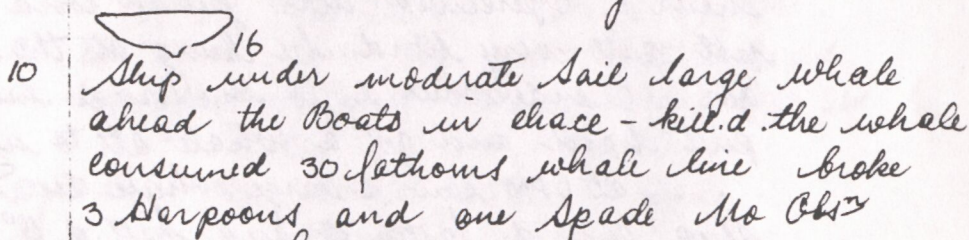 16
10 Ship under moderate sail large whale
ahead the Boats in chace - kill.d. the whale
consumed 30 fathoms whale line broke
3 Harpoons and one Spade No Obsns